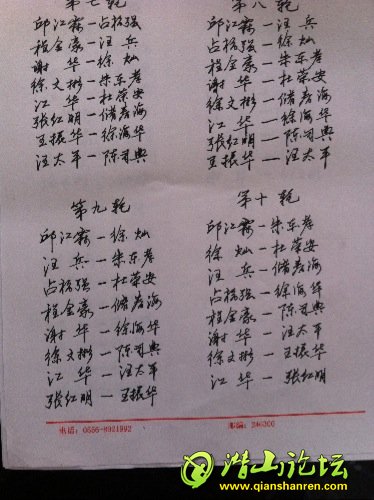 第七轮
邱江霖—占根强
程金豪—汪兵
谢华—徐灿
徐文彬—朱东彦
江华—杜荣安
张红明—储彦海
王振华—徐海华
汪太平—陈习典
第八轮
邱江霖—汪兵
占根强—徐灿
程金豪—朱东彦
谢华—杜荣安
徐文彬—储彦海
江华—徐海华
张红明—陈习典
王振华—汪太平
第九轮
邱江霖—徐灿
汪兵—朱东彦
占根强—杜荣安
程金豪—储彦海
谢华—徐海华
徐文彬—陈习典
江华—汪太平
张红明—王振华
第十轮
邱江霖—朱东彦
徐灿—杜荣安
汪兵—储彦海
占根强—徐海华
程金豪—陈习典
谢华—汪太平
徐文彬—王振华
江华—张红明
电话：0556-8921992
邮编：246300
潜山论坛
www.qianshanren.com